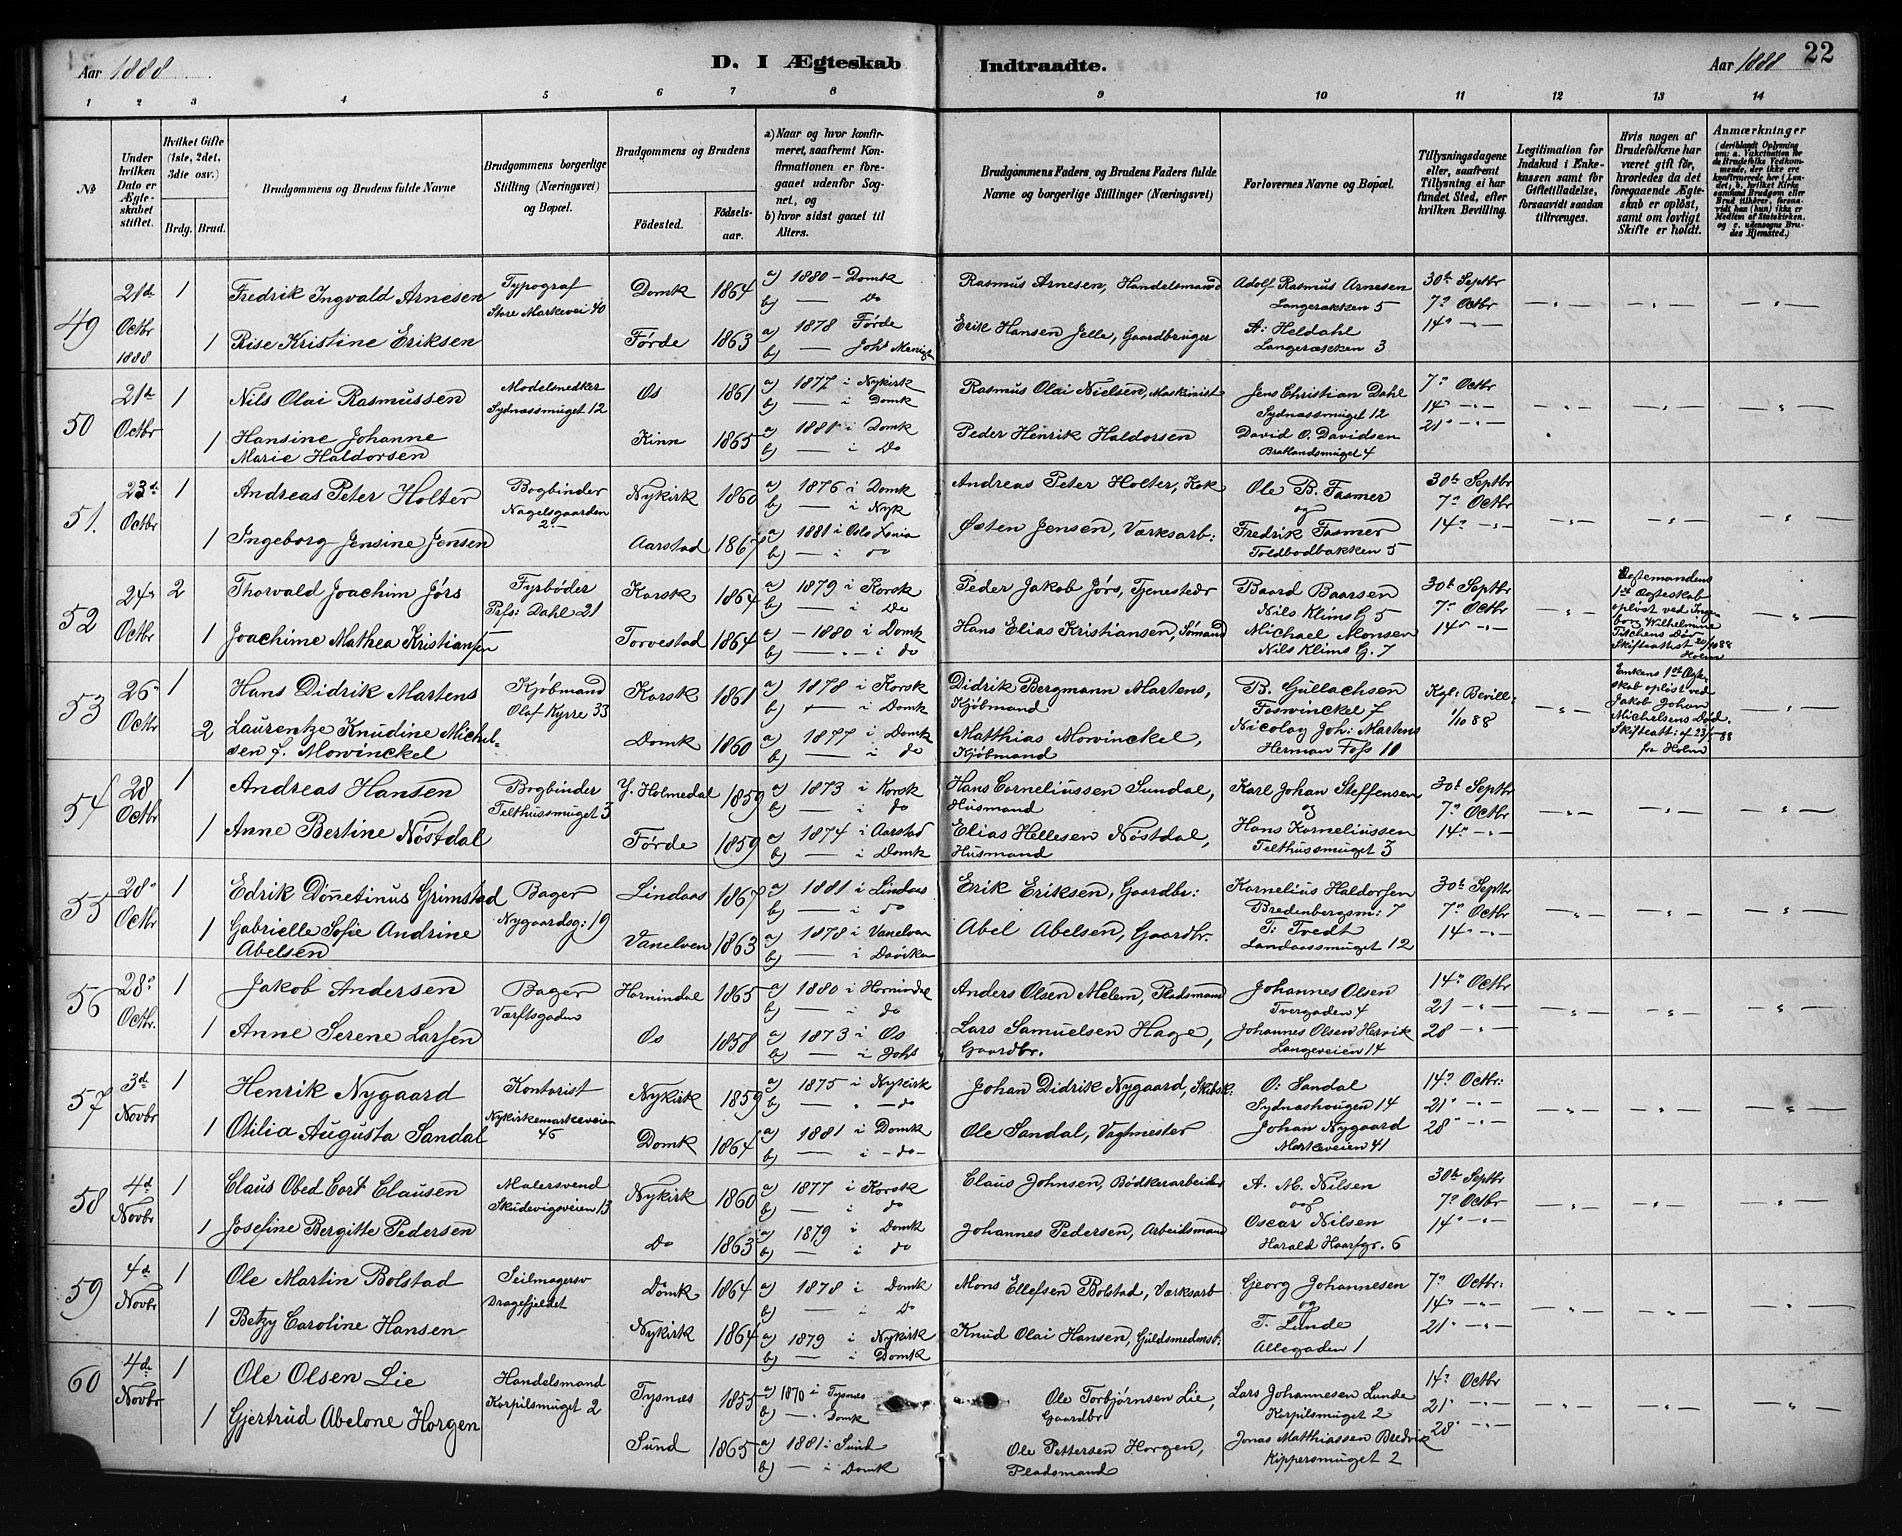 Aar 1888
D. I Ægteskab Indtraadte.
Aar 1888 22
1 2 3 4 5 6 7 8 9 10 11 12 13 14
No
Under hvilken Dato er Ægteskabet stiftet.
Hvilket Gifte (1ste, 2det, 3die osv.)
Brdg. Brud.
Brudgommens og Brudens fulde Navne
Brudgommens borgerlige Stilling (Næringsvei) og Bopæl.
Brudgommens og Brudens
Fødested. Fødselsaar.
a) Naar og hvor konfirmeret, saafremt Konfirmationen er foregaaet udenfor Sognet, og
b) hvor sidst gaaet til Alters.
Brudgommens Faders og Brudens Faders fulde Navne og borgerlige Stillinger (Næringsvei)
Forlovernes Navne og Bopæl.
Tillysningsdagene eller, saafremt Tillysning ei har fundet Sted, efter hvilken Bevilling.
Legitimation for Indskud i Enkekassen samt for Giftetilladelse, forsaavidt saadan tiltrænges.
Hvis nogen af Brudefolkene har været gift før, hvorledes da det foregaaende Ægteskab er opløst, samt om lovligt Skifte er holdt.
Anmærkninger
(deriblandt Oplysning om: a. Vakcination for de Brudefolks Vedkommende, der ikke ere konfirmerede her i Landet; b. hvilket Kirkesamfund Brudgom eller Brud tilhører, forsaavidt han (hun) ikke er Medlem af Statskirken, og c. udensogns Brudes Hjemsted.)
49 21de Octbr 1888 1 Fredrik Ingvald Arnesen Typograf Store Markevei 40 Domk 1864 a) 1880 - Domk b) — do Rasmus Arnesen, Handelsmand Adolf Rasmus Arnesen Langerækken 5 30te Septbr 7de Octbr 14" —"—
1 Rise Kristine Eriksen Førde 1863 a) 1878 Førde b) — Joh's Menigh Erik Hansen Jelle, Gaardbruger A: Heldahl Langerækken 3
50 21de Octbr 1 Nils Olai Rasmussen Modelsnedker Sydnæssmuget 12 Os 1861 a) 1877 i Nykirk b) — i Domk Rasmus Olai Nielsen, Maskinist Jens Christian Dahl Sydnæssmuget 12 7" Octbr 14" —"— 21" —"—
1 Hansine Johanne Marie Haldorsen Kinn 1865 a) 1881 i Domk b) — i Do Peder Henrik Haldorsen David O. Davidsen Bratlandsmuget 4
51. 23de Octbr 1 Andreas Peter Holter Bogbinder Nagelsgaarden 2 Nykirk 1860 a) 1876 i Domk b) — i Nyk Andreas Peter Holter, Kok Ole B. Fasmer og 30te Septbr 7" Octbr 14" —"—
1 Ingeborg Jensine Jensen Aarstad 1867 a) 1881 i Oslo Xania b) — i do Østen Jensen, Værksarb: Fredrik Fasmer Toldbodbakken 5
52 24" Octbr 2 Thorvald Joachim Jørs Fyrbøder Prfs: Dahl 21 Korsk 1864 a) 1879 i Korsk b) — i Do Peder Jakob Jørs, Tjenestedr Baard Baarsen Nils Klims G 5 30te Septbr 7" Octbr 14" —"— Egtemandens 1ste Ægteskab opløst ved Ingeborg Wilhelmine Tischens Død Skifteattest 20/10 88 Holm
1 Joachime Mathea Kristiansen Torvestad 1864 a) 1880 i Domk b) — i do Hans Elias Kristiansen, Sømand Michael Monsen Nils Klims G. 7
53 26" Octbr 1 Hans Didrik Martens Kjøbmand Olaf Kyrre 33 Korsk 1861 a) 1878 i Korsk b) — i Domk Didrik Bergmann Martens, Kjøbmand B. Gullachsen Foswinckel 7 Kgl: Bevill: 1/10 88 Enkens 1ste Ægteskab opløst ved Jakob Johan Michelsens Død. Skifteatt: af 23/5 88 fra Holm
2 Laurentze Knudine Michelsen f. Mowinckel Domk 1860 a) 1877 i Domk b) — i do Matthias Mowinckel, Kjøbmand Nicolay Joh: Martens Herman Foss 10
54 28 Octbr 1 Andreas Hansen Bogbinder Telthussmuget 3 Y. Holmedal 1859 a) 1873 i Korsk b) — i do Hans Corneliussen Sundal, Husmand Karl Johan Steffensen og 30te Septbr 7" Octbr 14" —"—
1 Anne Bertine Nøstdal Førde 1859 a) 1874 i Aarstad b) — i Domk Elias Hellesen Nøstdal, Husmand Hans Korneliussen Telthussmuget 3
55 28" Octbr 1 Edrik Donetinus Grimstad Bager Nygaardsg: 19 Lindaas 1867 a) 1881 i Lindaas b) — i do Erik Eriksen, Gaardbr: Kornelius Haldorsen Bredenbergsm: 7 30te Septbr 7" Octbr 14" —"—
1 Gabrielle Sofie Andrine Abelsen Vanelven 1863 a) 1878 i Vanelven b) — i Daviken Abel Abelsen, Gaardbr. T: Tvedt Landaassmuget 12
56 28" Octbr. 1 Jakob Andersen Bager Værftsgaden Hornindal 1865 a) 1880 i Hornindal b) — i do Anders Olsen Melem, Pladsmand Johannes Olsen Tvergaden 4 14" Octbr 21 —"— 28 —"—
1 Anne Serene Larsen Os 1858 a) 1873 i Os b) — i Johs Lars Samuelsen Hage, Gaardbr. Johannes Olsen Hesvik Langeveien 14
57 3de Novbr 1 Henrik Nygaard Kontorist Nykirkemarkeveien 46 Nykirk 1859 a) 1875 i Nykirk b) — " — do Johan Didrik Nygaard, Skibsk: O: Sandal Sydnæshougen 14 14" Octbr: 21" —"— 28" —"—
1 Otilia Augusta Sandal Domk 1864 a) 1881 i Domk b) — i - do - Ole Sandal, Vagtmester Johan Nygaard Markeveien 41
58 4de Novbr 1 Claus Obed Cort Clausen Malersvend Skudevigsveien 13 Nykirk 1860 a) 1877 i Korsk b) — i do Claus Johnsen, Bødkerarbeider A. M. Nilsen og 30te Septbr 7" Octbr 14" —"—
1 Josefine Bergitte Pedersen Do 1863 a) 1879 i Domk b) — i do Johannes Pedersen, Arbeidsmand Oscar Nilsen Harald Haarfgr. 6
59 4de Novbr 1 Ole Martin Bolstad Seilmagersv Dragefjeldet Domk 1864 a) 1878 i Domk b) — i Do Mons Ellefsen Bolstad, Værksarb Georg Johannesen og 7" Octbr: 14" —"— 21" —"—
1 Betzy Caroline Hansen Nykirk 1864 a) 1879 i Nykirk b) — i Domk Knud Olai Hansen, Guldsmedmst: T. Lunde Allegaden 1
60 4de Novbr 1 Ole Olsen Lie Handelsmand Korpilsmuget 2 Tysnæs 1855 a) 1870 i Tysnæs b) — i Domk Ole Torbjørnsen Lie, Gaardbr Lars Johannesen Lunde Korpilsmuget 2 14" Octbr 21" —"— 28" —"—
1 Gjertrud Abelone Horgen Sund 1865 a) 1881 i Sund b) — i Domk Ole Pettersen Horgen, Pladsmand Jonas Matthiassen Bredvik Kippersmuget 2